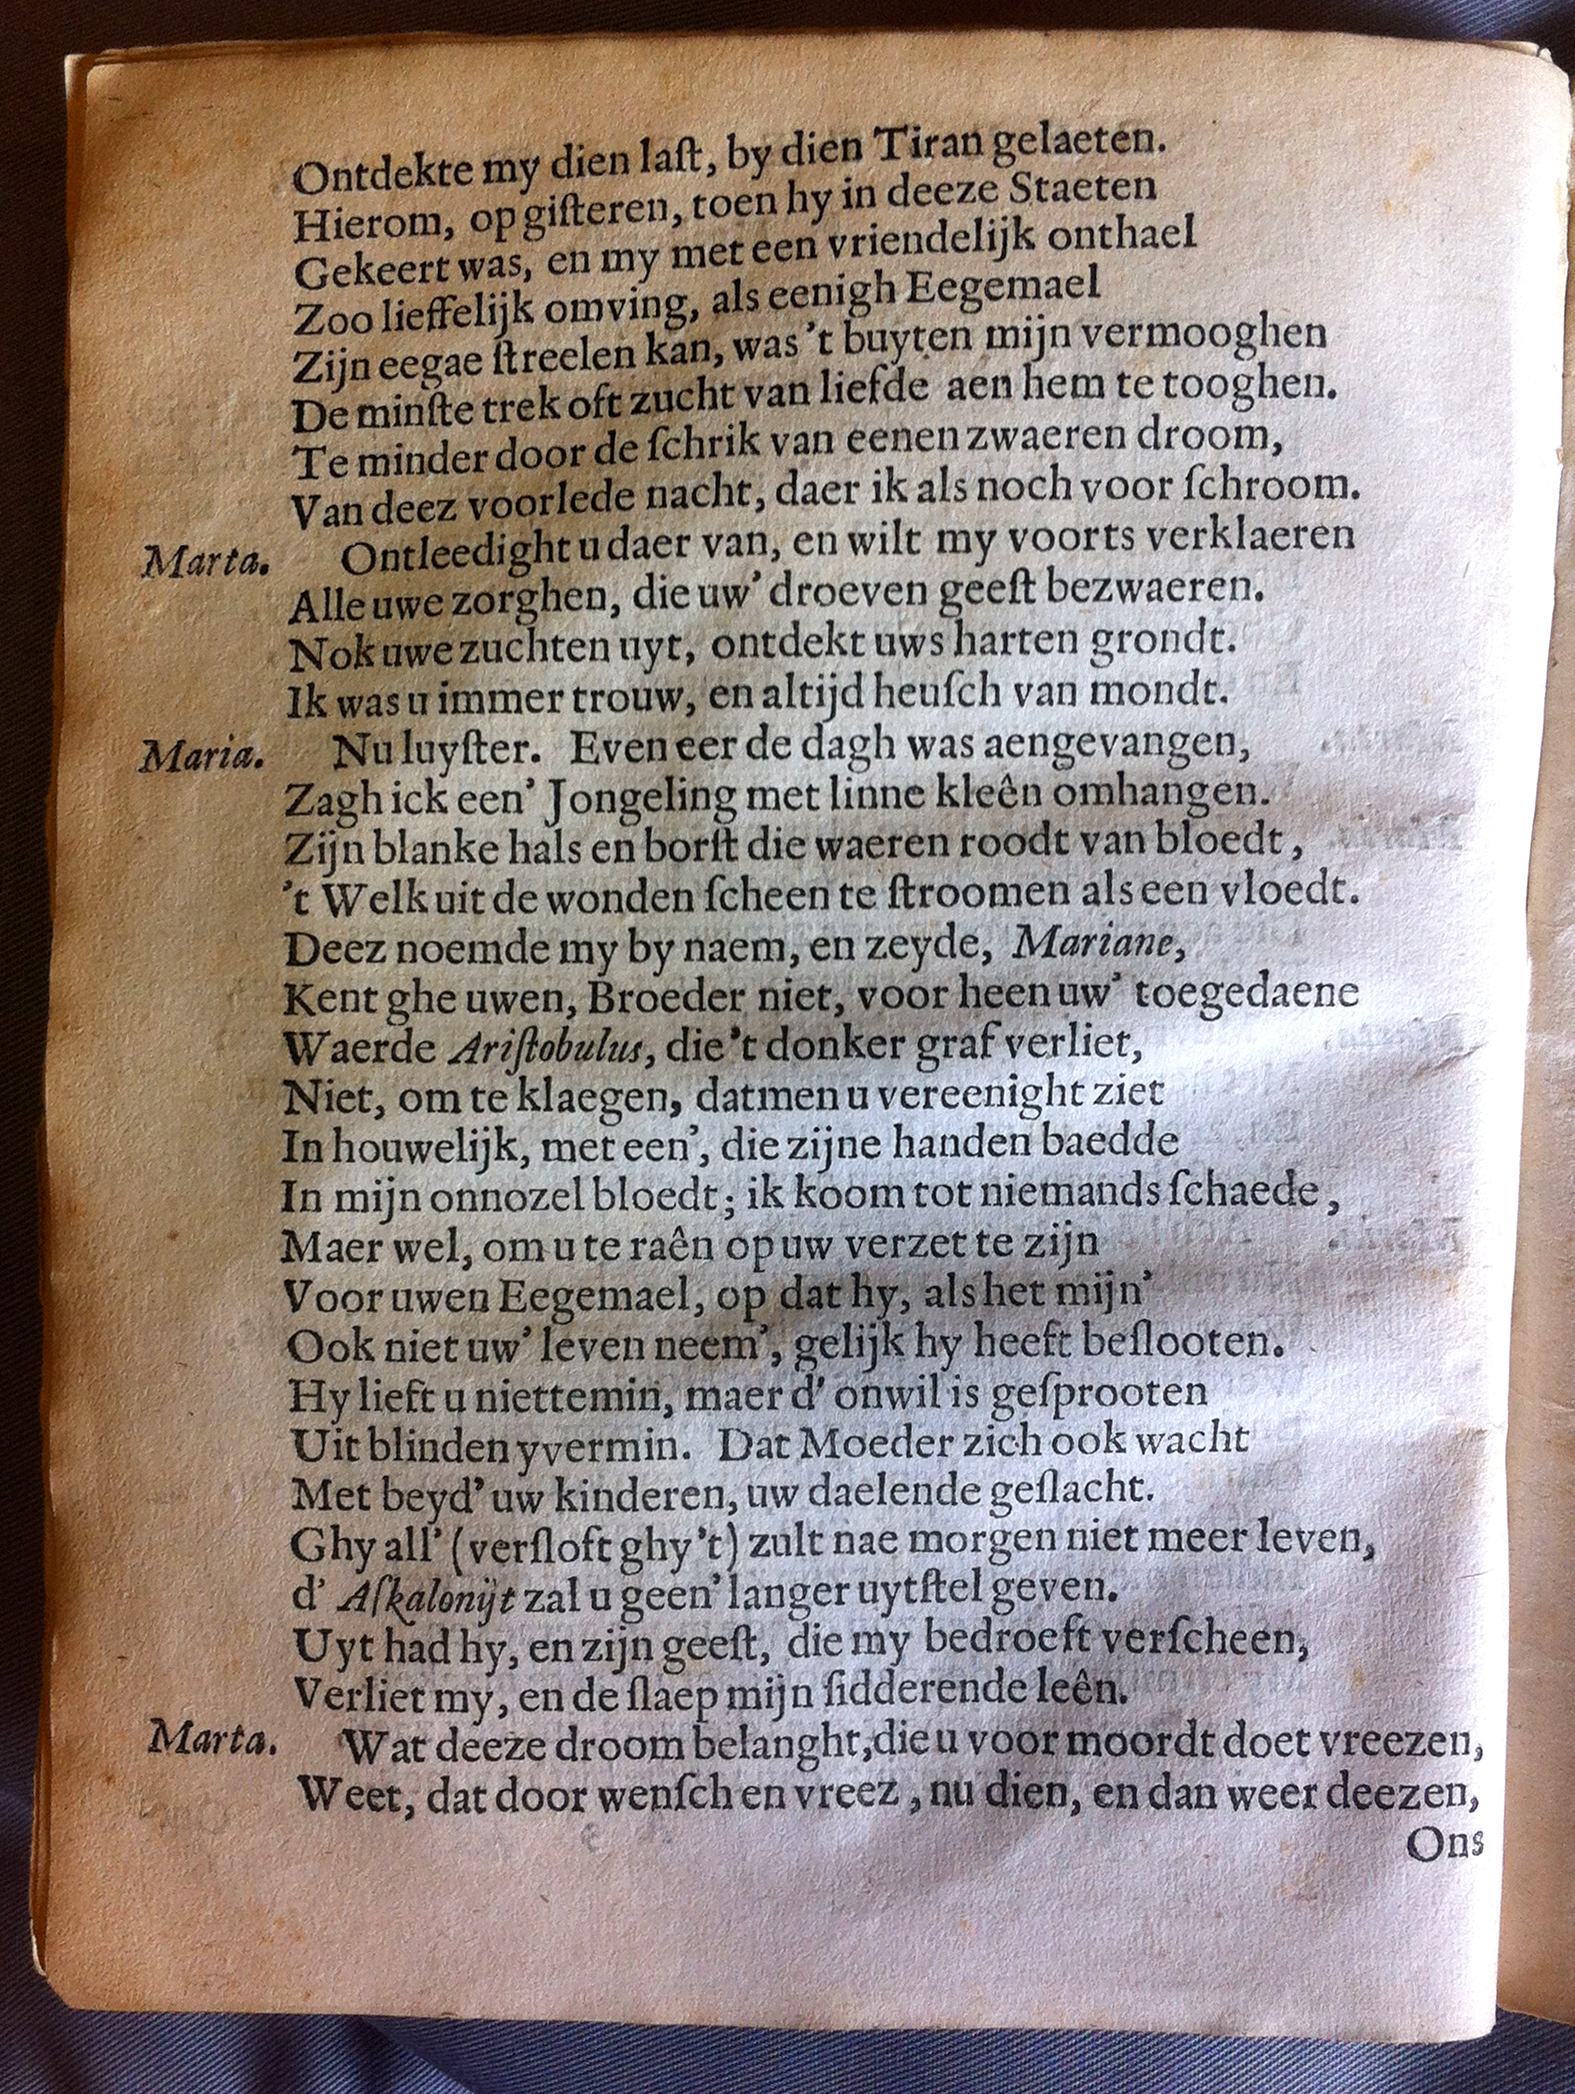 Ontdekte my dien laſt, by dien Tiran gelaeten.
Hierom, op giſteren, toen hy in deeze Staeten
Gekeert was, en my met een vriendelijk onthael
Zoo lieffelijk omving, als eenigh Eegemael
Zijn eegae ſtreelen kan, was 't buyten mijn vermooghen
De minſte trek oft zucht van liefde aen hem te tooghen.
Te minder door de ſchrik van eenen zwaeren droom,
Van deez voorlede nacht, daer ik als noch voor ſchroom.
Marta. Ontleedight u daer van, en wilt my voorts verklaeren
Alle uwe zorghen, die uw' droeven geeſt bezwaeren.
Nok uwe zuchten uyt, ontdekt uws harten grondt.
Ik was u immer trouw, en altijd heuſch van mondt.
Maria. Nu luyſter. Even eer de dagh was aengevangen,
Zagh ick een' Jongeling met linne kleên omhangen.
Zijn blanke hals en borſt die waeren roodt van bloedt,
't Welk uit de wonden ſcheen te ſtroomen als een vloedt.
Deez noemde my by naem, en zeyde, Mariane,
Kent ghe uwen, Broeder niet, voor heen uw' toegedaene
Waerde Ariſtobulus, die 't donker graf verliet,
Niet, om te klaegen, datmen u vereenight ziet
In houwelijk, met een', die zijne handen baedde
In mijn onnozel bloedt; ik koom tot niemands ſchaede,
Maer wel, om u te raên op uw verzet te zijn
Voor uwen Eegemael, op dat hy, als het mijn'
Ook niet uw' leven neem', gelijk hy heeft beſlooten.
Hy lieft u niettemin, maer d' onwil is geſprooten
Uit blinden yvermin. Dat Moeder zich ook wacht
Met beyd' uw kinderen, uw daelende geſlacht.
Ghy all' (verſloft ghy 't) zult nae morgen niet meer leven,
d' Aſkalonijt zal u geen' langer uytſtel geven.
Uyt had hy, en zijn geeſt, die my bedroeft verſcheen,
Verliet my, en de ſlaep mijn ſidderende leên.
Marta. Wat deeze droom belanght, die u voor moordt doet vreezen,
Weet, dat door wenſch en vreez, nu dien, en dan weer deezen,
Ons